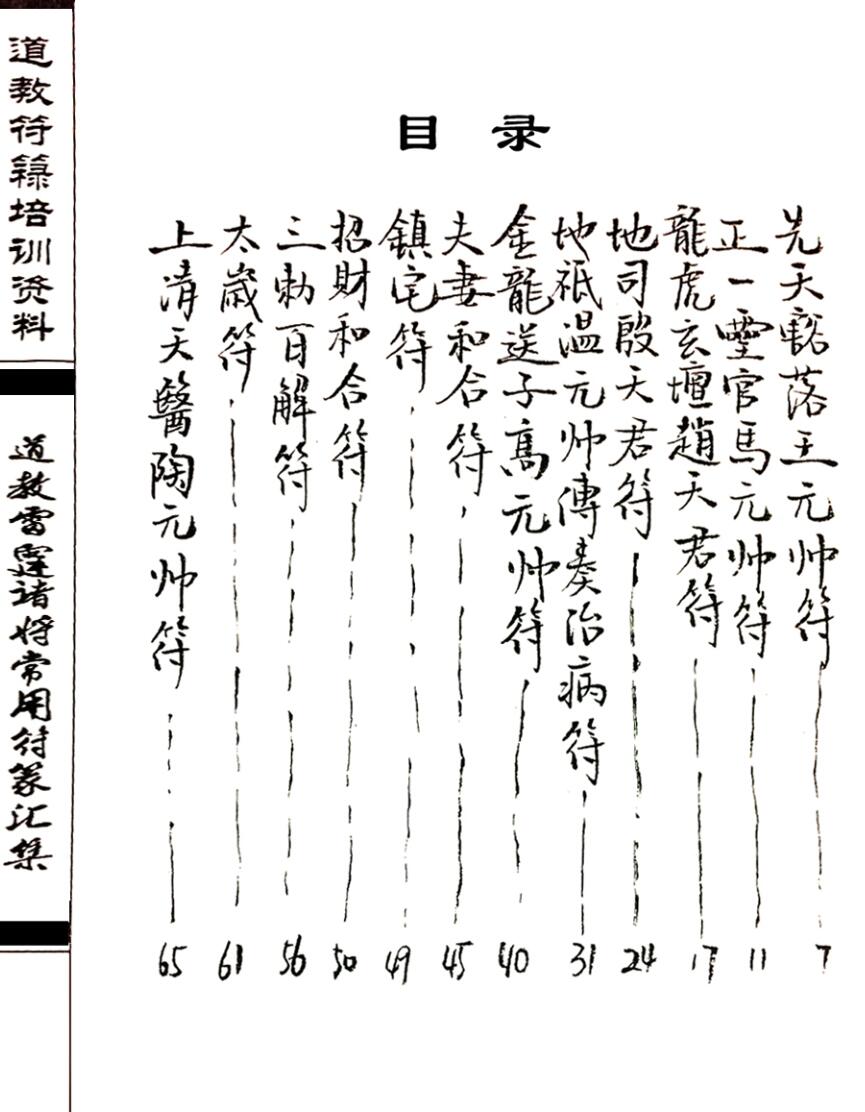 道教符籙培训资料
道教雷霆诸将常用符篆汇集
目录
先天豁落王元帅符 7
正一靈官馬元帅符 11
龍虎玄壇趙天君符 17
地司殷天君符 24
地祇温元帅傳奏治病符 31
金龍送子高元帅符 40
夫妻和合符 45
鎮宅符 49
招財和合符 50
三勑百解符 56
太歲符 61
上清天醫陶元帅符 65